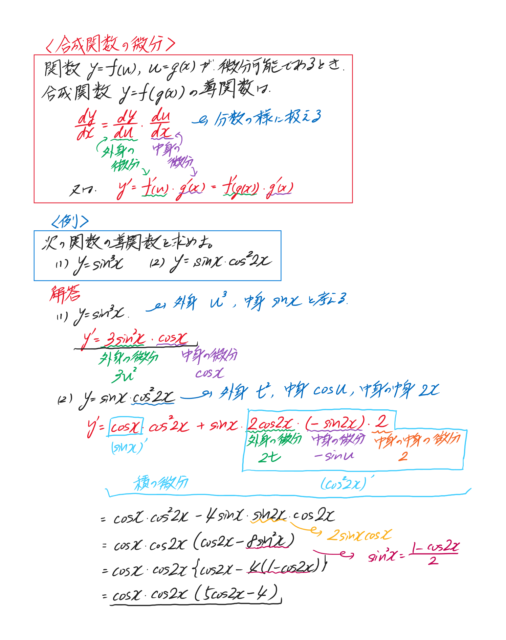 〈合成関数の微分〉
関数 y=f(u), u=g(x) が微分可能であるとき、
合成関数 y=f(g(x)) の導関数は、
dy/dx = dy/du · du/dx → 分数の様に扱える
外身の微分 中身の微分
又は、 y' = f'(u)·g'(x) = f'(g(x))·g'(x)
〈例〉
次の関数の導関数を求めよ。
(1) y=sin³x (2) y=sinx·cos²2x
解答
(1) y=sin³x. → 外身 u³, 中身 sinx と考える.
y' = 3sin²x · cosx
外身の微分 中身の微分
3u² cosx
(2) y=sinx·cos²2x → 外身 t², 中身 cosu, 中身の中身 2x
y' = cosx·cos²2x + sinx·2cos2x·(-sin2x)·2
(sinx)' 外身の微分 中身の微分 中身の中身の微分
2t -sinu 2
積の微分 (cos²2x)'
= cosx·cos²2x - 4sinx·sin2x·cos2x
→ 2sinxcosx
= cosx·cos2x (cos2x - 8sin²x)
→ sin²x = 1-cos2x/2
= cosx·cos2x {cos2x - 4(1-cos2x)}
= cosx·cos2x (5cos2x-4)